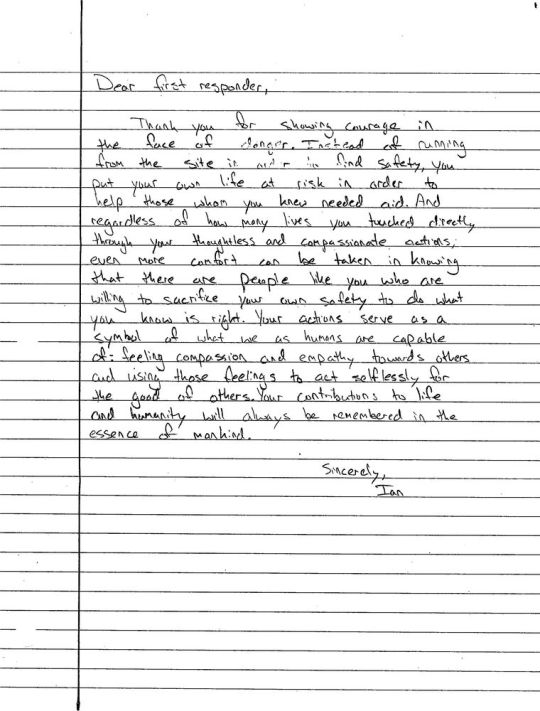 Dear first responder,
Thank you for showing courage in
the face of danger. Instead of running
from the site in order to find safety, you
put your own life at risk in order to
help those whom you knew needed aid. And
regardless of how many lives you touched directly,
through your thoughtless and compassionate actions,
even more comfort can be taken in knowing
that there are people like you who are
willing to sacrifice your own safety to do what
you know is right. Your actions serve as a
symbol of what we as humans are capable
of: feeling compassion and empathy towards others
and using those feelings to act selflessly for
the good of others. Your contributions to life
and humanity will always be remembered in the
essence of mankind.
Sincerely,
Ian